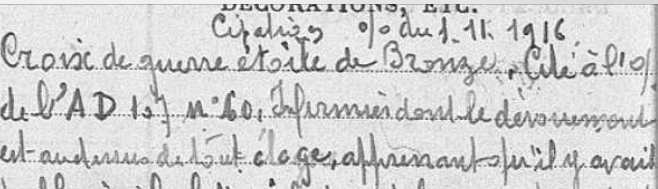 DÉCORATIONS, ETC.
Citations o/o du 1. 11. 1916.
Croix de guerre étoile de Bronze. Cité à l'o/
de l'AD 157 n° 60, Infirmier dont le dévouement
est au dessus de tout éloge, apprenant qu'il y avait